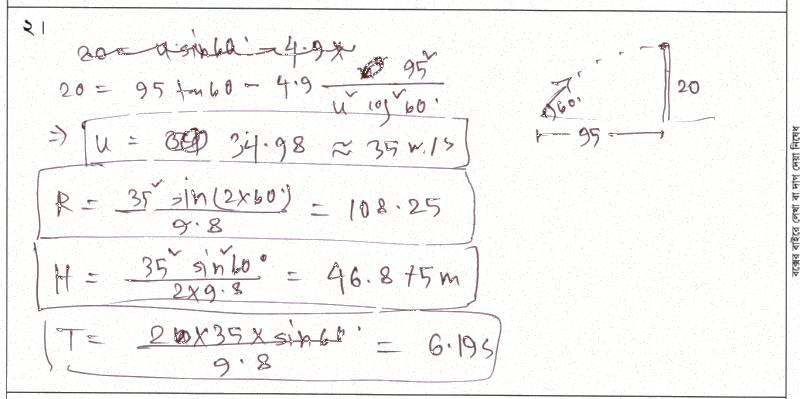 ২।
20 = u sin60 - 4.9x
20 = 95 tan60 - 4.9 95² / u² cos² 60°
⇒ u = 34.98 ≈ 35 m/s
R = 35² sin(2×60°) / 9.8 = 108.25
H = 35² sin²60° / 2×9.8 = 46.875 m
T = 2×35×sin60° / 9.8 = 6.19s
60°
20
95
বক্সের বাইরে লেখা বা দাগ দেয়া নিষেধ